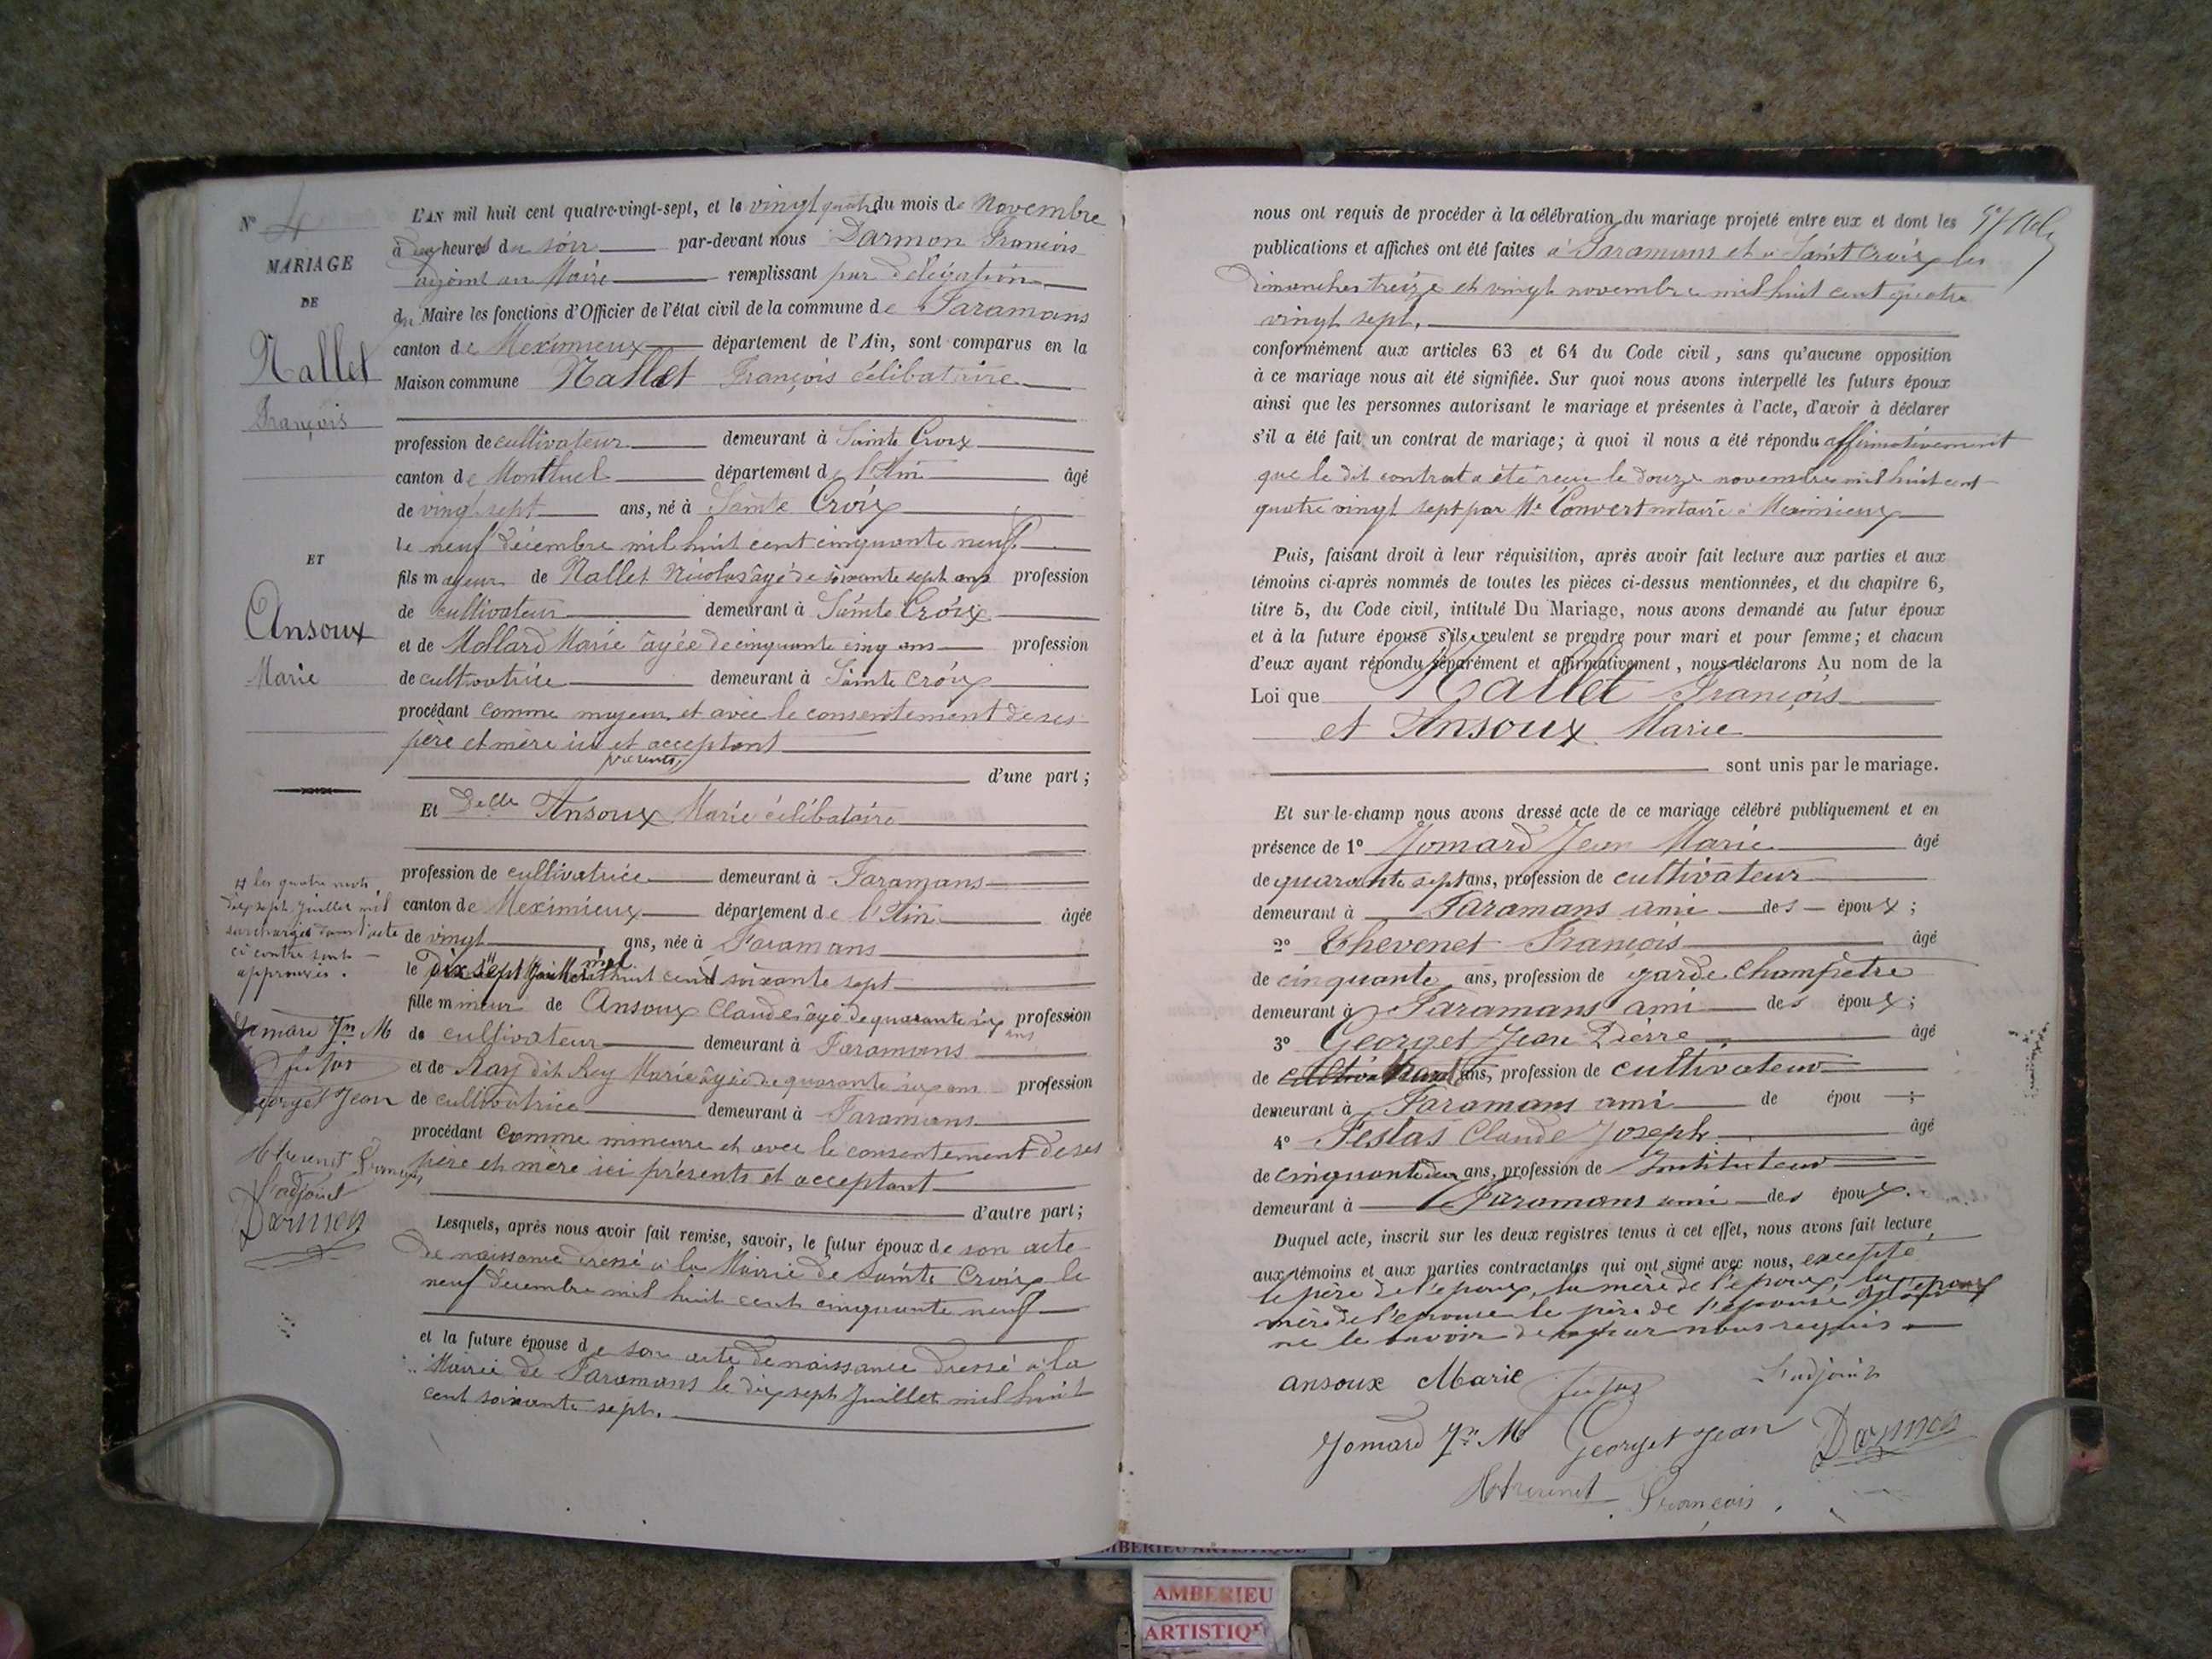 N° 4
MARIAGE
DE
Nallet
François
ET
Ansoux
Marie
L'AN mil huit cent quatre-vingt-sept, et le vingt quatre du mois de Novembre
à heures du soir par-devant nous Darmon François
adjoint au Maire remplissant par délégation
du Maire les fonctions d'Officier de l'état civil de la commune de Faramans
canton de Meximieux département de l'Ain, sont comparus en la
Maison commune Nallet François célibataire
profession de cultivateur demeurant à Sainte Croix
canton de Montluel département de l'Ain âgé
de vingt sept ans, né à Sainte Croix
le neuf décembre mil huit cent cinquante neuf
fils majeur de Nallet Nicolas âgé de soixante sept ans profession
de cultivateur demeurant à Sainte Croix
et de Mollard Marie âgée de cinquante cinq ans profession
de cultivatrice demeurant à Sainte Croix
procédant comme majeur et avec le consentement de ses
père et mère ici présents et acceptant
d'une part ;
Et Delle Ansoux Marie célibataire
profession de cultivatrice demeurant à Faramans
canton de Meximieux département de l'Ain âgée
de vingt ans, née à Faramans
le Dix sept Juillet mil huit cent soixante sept
fille mineur de Ansoux Claude âgé de quarante six ans profession
de cultivateur demeurant à Faramans
et de Ray dit Rey Marie âgée de quarante six ans profession
de cultivatrice demeurant à Faramans
procédant comme mineure et avec le consentement de ses
père et mère ici présents et acceptant
d'autre part ;
Lesquels, après nous avoir fait remise, savoir, le futur époux de son acte
de naissance dressé à la Mairie de Sainte Croix le
neuf décembre mil huit cent cinquante neuf
et la future épouse de son acte de naissance dressé à la
Mairie de Faramans le dix sept Juillet mil huit
cent soixante sept.
les quatre mots
dix sept Juillet mil
surchargés dans l'acte
ci contre sont
approuvés.
Jn M
Georget Jean
Thevenet François
L'adjoint
Darmon
nous ont requis de procéder à la célébration du mariage projeté entre eux et dont les
publications et affiches ont été faites à Faramans et à Sainte Croix les
dimanches treize et vingt novembre mil huit cent quatre
vingt sept.
conformément aux articles 63 et 64 du Code civil, sans qu'aucune opposition
à ce mariage nous ait été signifiée. Sur quoi nous avons interpellé les futurs époux
ainsi que les personnes autorisant le mariage et présentes à l'acte, d'avoir à déclarer
s'il a été fait un contrat de mariage ; à quoi il nous a été répondu affirmativement
que le dit contrat a été reçu le douze novembre mil huit cent
quatre vingt sept par Me Convert notaire à Meximieux
Puis, faisant droit à leur réquisition, après avoir fait lecture aux parties et aux
témoins ci-après nommés de toutes les pièces ci-dessus mentionnées, et du chapitre 6,
titre 5, du Code civil, intitulé Du Mariage, nous avons demandé au futur époux
et à la future épouse s'ils veulent se prendre pour mari et pour femme ; et chacun
d'eux ayant répondu séparément et affirmativement, nous déclarons Au nom de la
Loi que Nallet François
et Ansoux Marie
sont unis par le mariage.
Et sur-le-champ nous avons dressé acte de ce mariage célébré publiquement et en
présence de 1° Jomard Jean Marie âgé
de quarante sept ans, profession de cultivateur
demeurant à Faramans ami des époux ;
2° Thevenet François âgé
de cinquante ans, profession de garde champêtre
demeurant à Faramans ami des époux ;
3° Georget Jean Pierre âgé
de ans, profession de cultivateur
demeurant à Faramans ami de épou ;
4° Festas Claude Joseph âgé
de cinquante deux ans, profession de Instituteur
demeurant à Faramans ami des époux.
Duquel acte, inscrit sur les deux registres tenus à cet effet, nous avons fait lecture
aux témoins et aux parties contractantes qui ont signé avec nous, excepté
le père de l'époux, la mère de l'époux, la
mère de l'épouse le père de l'épouse
ne le savoir de par nous requis
ansoux Marie
L'adjoint
Jomard Jn M Georget Jean Darmon
Thevenet François
AMBERIEU ARTISTIQUE
AMBERIEU
ARTISTIQ